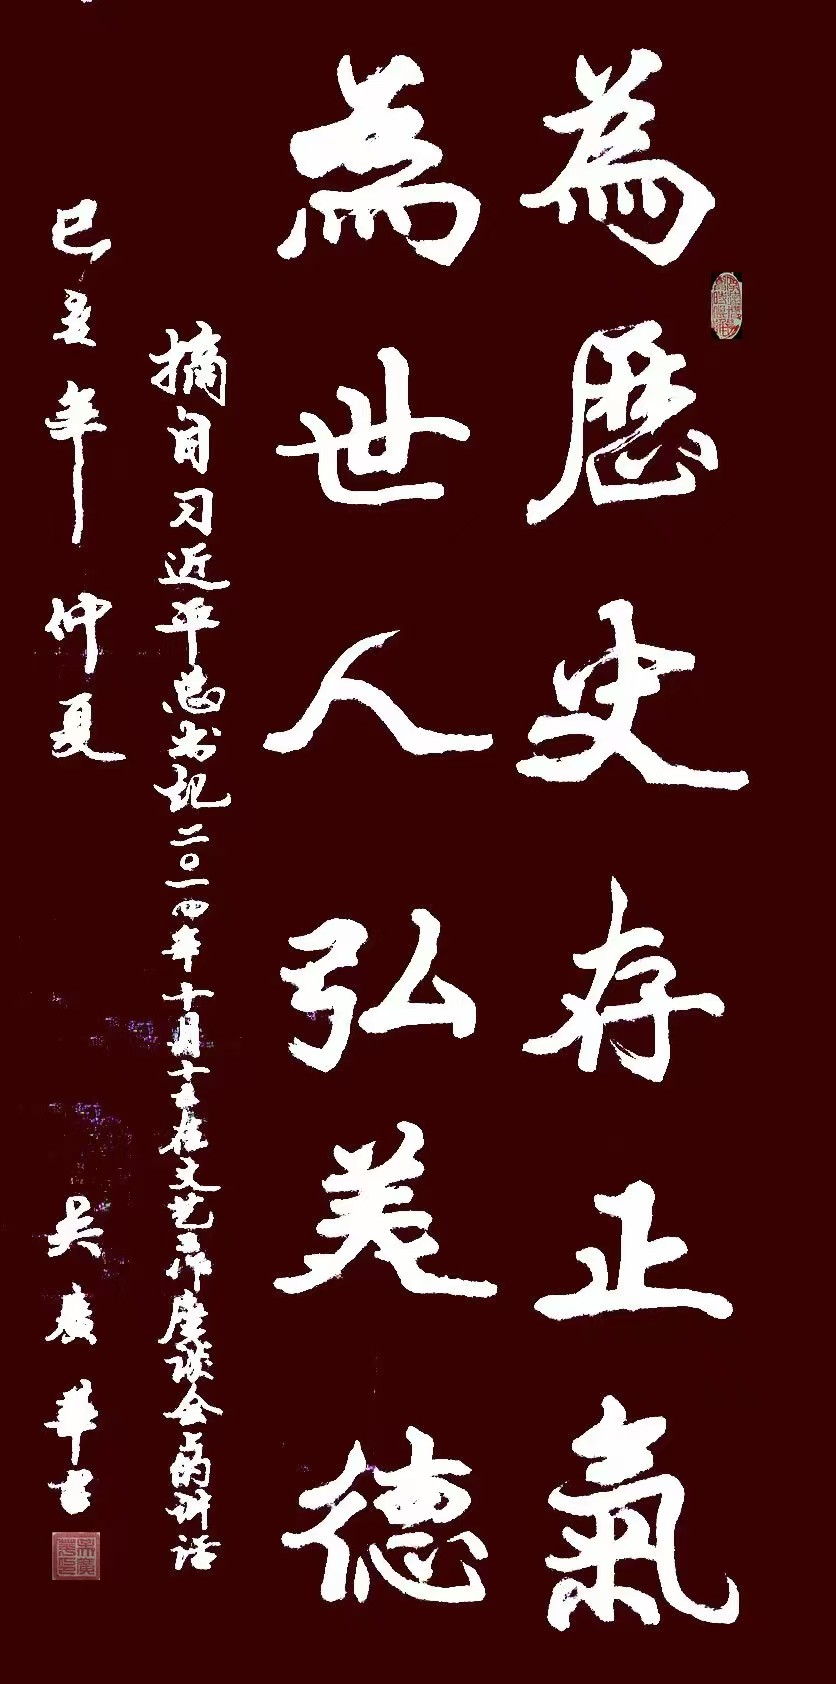 為歷史存正氣
為世人弘美德
摘自习近平总书记二〇一四年十月十五在文艺工作座谈会上的讲话
己亥年仲夏 吴廣華书